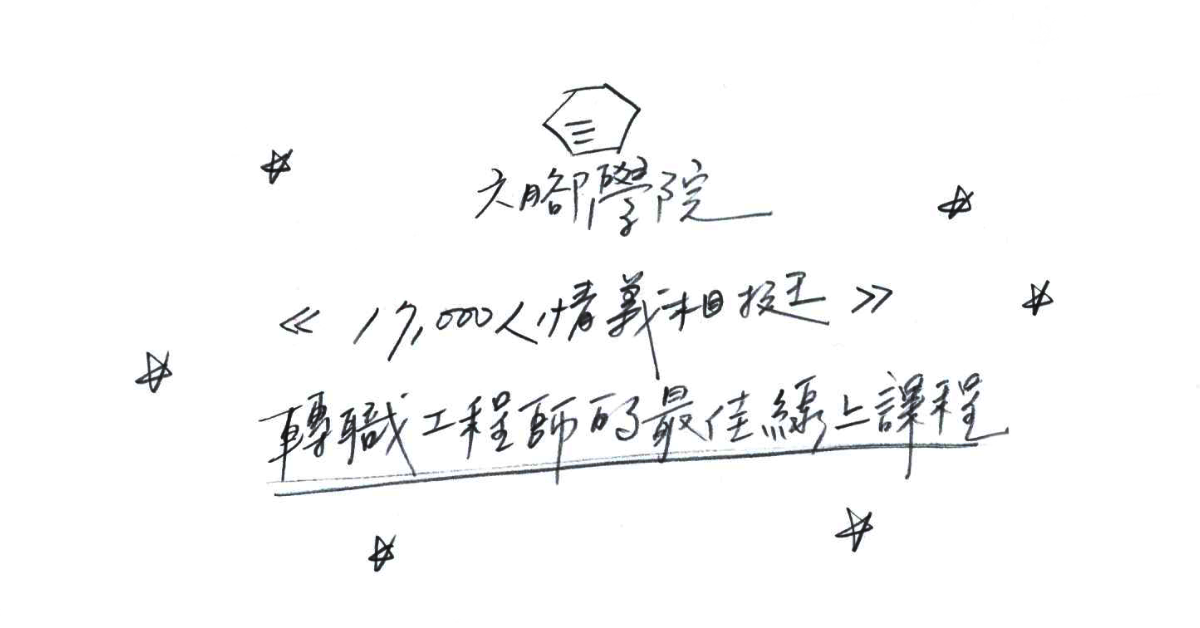 六腳學院
《 17,000人情義相挺 》
轉職工程師的最佳線上課程